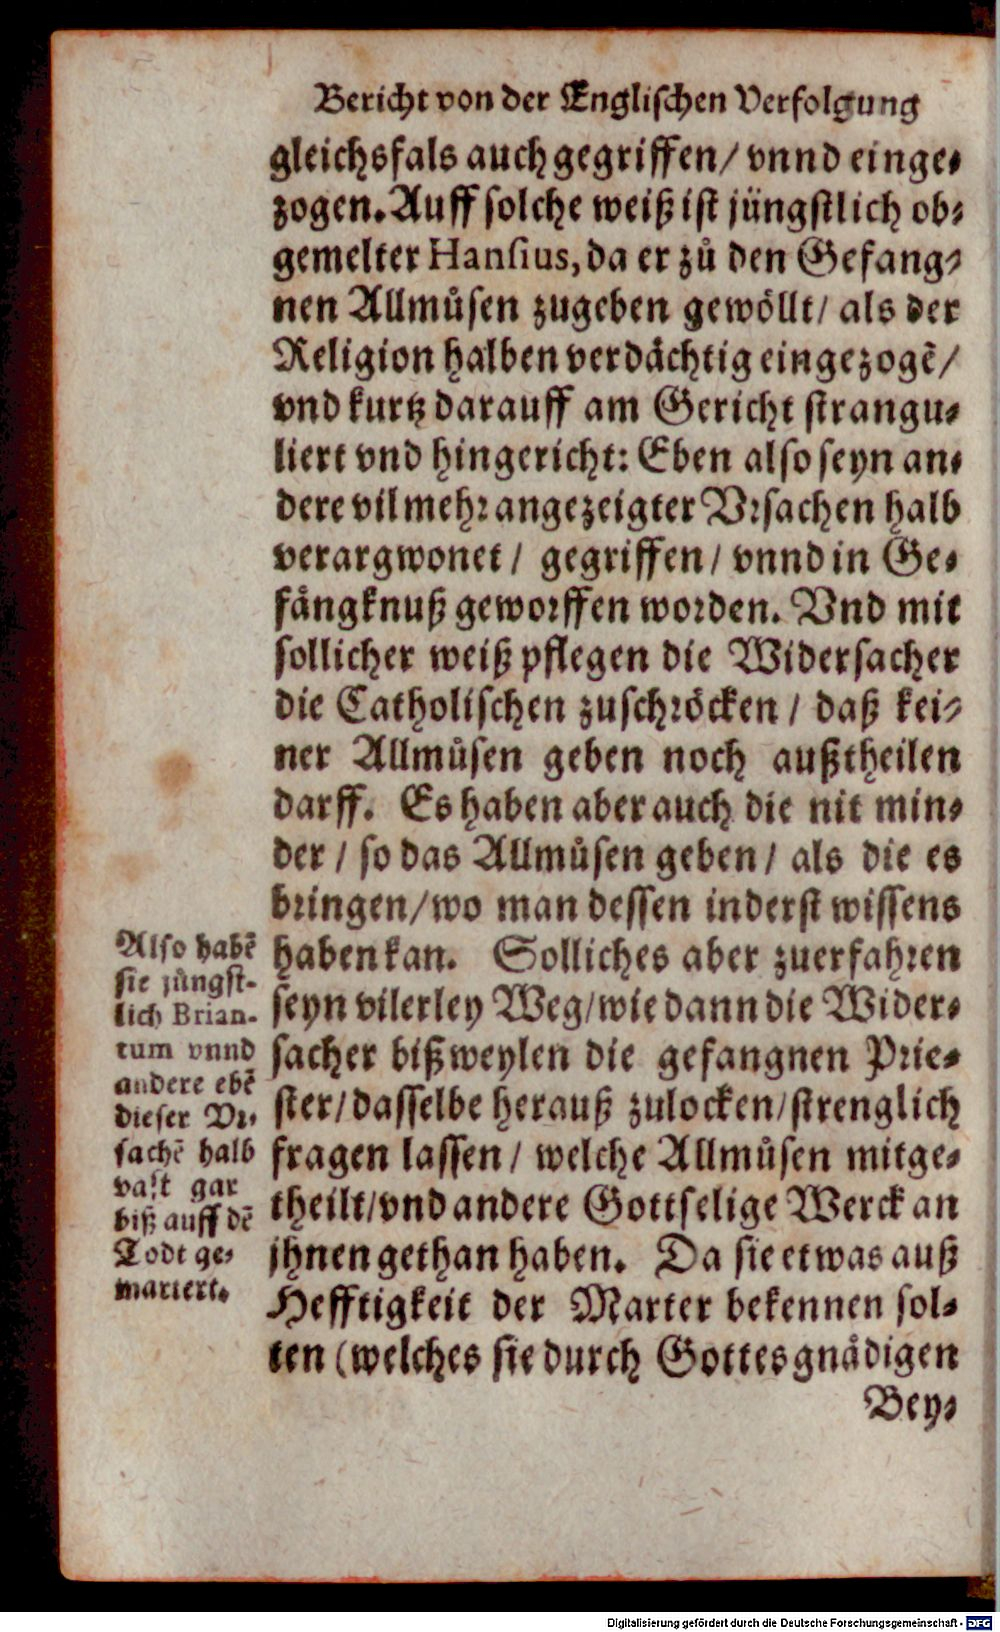 Bericht von der Englischen Verfolgung
gleichsfals auch gegriffen/ vnnd einge-
zogen. Auff solche weiß ist jüngstlich ob-
gemelter Hansius, da er zů den Gefang-
nen Allmůsen zugeben gewöllt/ als der
Religion halben verdächtig eingezogẽ/
vnd kurtz darauff am Gericht strangu-
liert vnd hingericht: Eben also seyn an-
dere vil mehr angezeigter Vrsachen halb
verargwonet/ gegriffen/ vnnd in Ge-
fängknuß geworffen worden. Vnd mit
sollicher weiß pflegen die Widersacher
die Catholischen zuschröcken/ daß kei-
ner Allmůsen geben noch außtheilen
darff. Es haben aber auch die nit min-
der/ so das Allmůsen geben/ als die es
bringen/ wo man dessen inderst wissens
haben kan. Solliches aber zuerfahren
seyn vilerley Weg/ wie dann die Wider-
sacher bißweylen die gefangnen Prie-
ster/ dasselbe herauß zulocken/ strenglich
fragen lassen/ welche Allmůsen mitge-
theilt/ vnd andere Gottselige Werck an
jhnen gethan haben. Da sie etwas auß
Hefftigkeit der Marter bekennen sol-
ten (welches sie durch Gottes gnädigen
Bey-
Also habẽ
sie jüngst-
lich Brian-
tum vnnd
andere ebẽ
dieser Vr-
sachẽ halb
vast gar
biß auff dẽ
Todt ge-
martert.
Digitalisierung gefördert durch die Deutsche Forschungsgemeinschaft - DFG